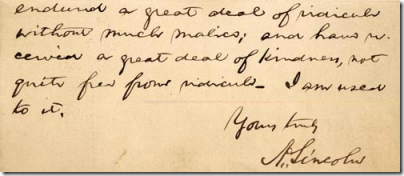 endured a great deal of ridicule
without much malice; and have re-
ceived a great deal of kindness, not
quite free from ridicule— I am used
to it.
Yours truly
A. Lincoln